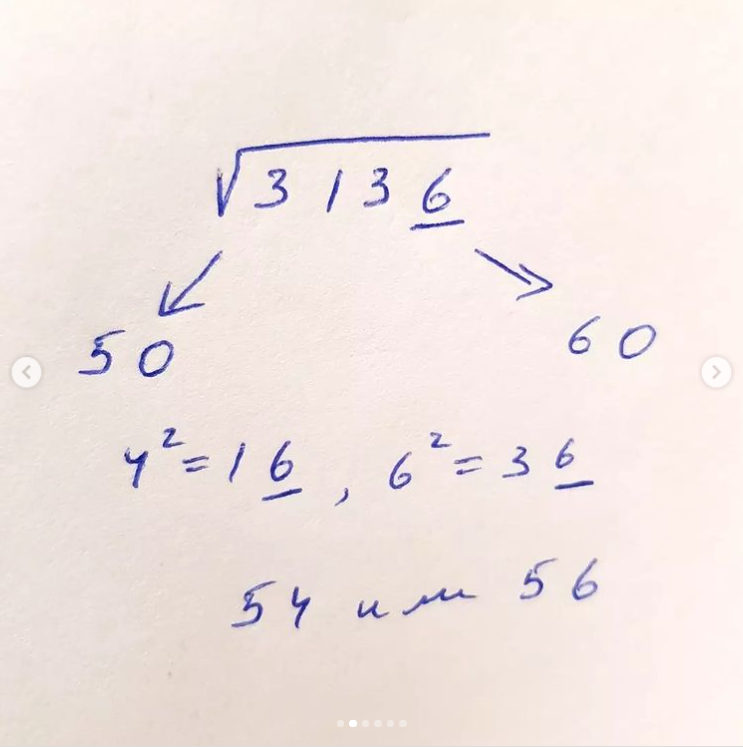 √3136
50 60
4²=16, 6²=36
54 или 56